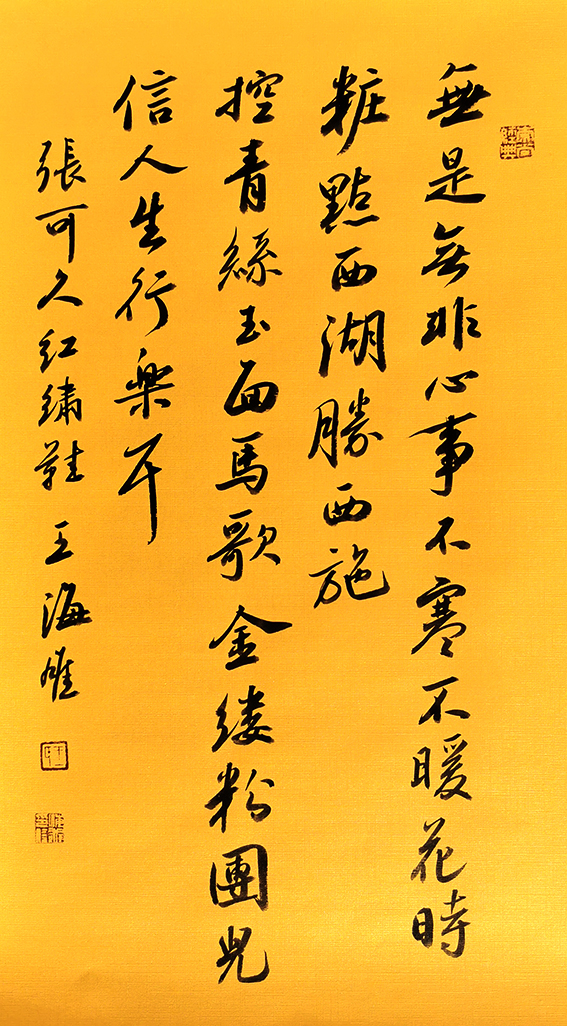 無是無非心事不寒不暖花時
粧點西湖勝西施
控青絲玉面馬歌金縷粉團兒
信人生行樂耳
張可久紅繡鞋 王海